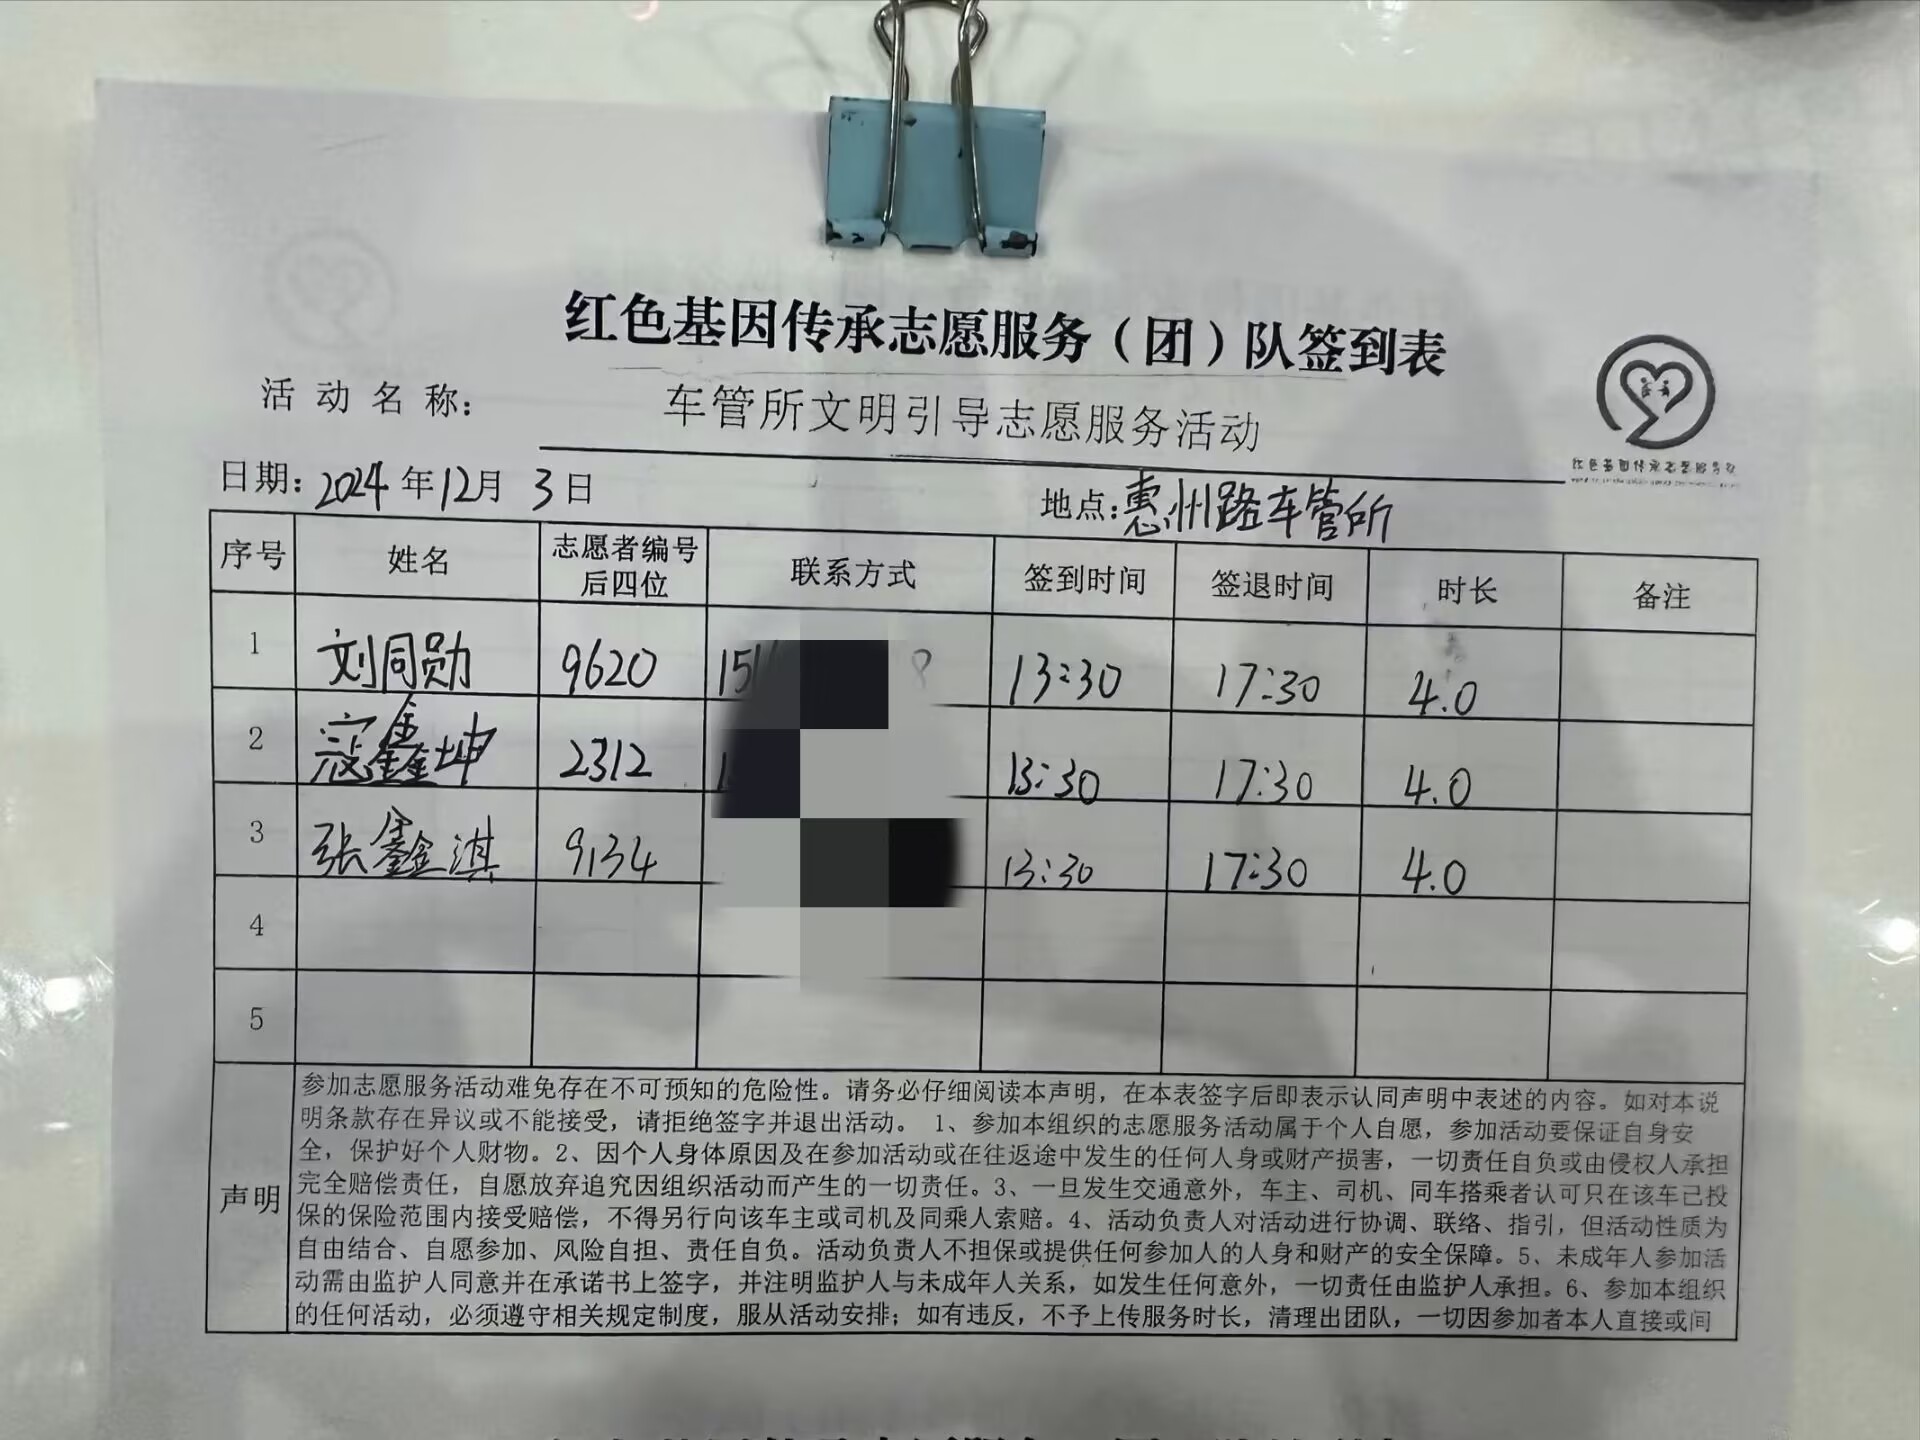 红色基因传承志愿服务（团）队签到表
活动名称： 车管所文明引导志愿服务活动
日期：2024年12月3日 地点：惠州路车管所
序号 姓名 志愿者编号后四位 联系方式 签到时间 签退时间 时长 备注
1 刘同勋 9620 151 8 13:30 17:30 4.0
2 寇鑫坤 2312 1 13:30 17:30 4.0
3 张鑫淇 9134 13:30 17:30 4.0
4
5
声明
参加志愿服务活动难免存在不可预知的危险性。请务必仔细阅读本声明，在本表签字后即表示认同声明中表述的内容。如对本说
明条款存在异议或不能接受，请拒绝签字并退出活动。 1、参加本组织的志愿服务活动属于个人自愿，参加活动要保证自身安
全，保护好个人财物。2、因个人身体原因及在参加活动或在往返途中发生的任何人身或财产损害，一切责任自负或由侵权人承担
完全赔偿责任，自愿放弃追究因组织活动而产生的一切责任。3、一旦发生交通意外，车主、司机、同车搭乘者认可只在该车已投
保的保险范围内接受赔偿，不得另行向该车主或司机及同乘人索赔。4、活动负责人对活动进行协调、联络、指引，但活动性质为
自由结合、自愿参加、风险自担、责任自负。活动负责人不担保或提供任何参加人的人身和财产的安全保障。5、未成年人参加活
动需由监护人同意并在承诺书上签字，并注明监护人与未成年人关系，如发生任何意外，一切责任由监护人承担。6、参加本组织
的任何活动，必须遵守相关规定制度，服从活动安排；如有违反，不予上传服务时长，清理出团队，一切因参加者本人直接或间